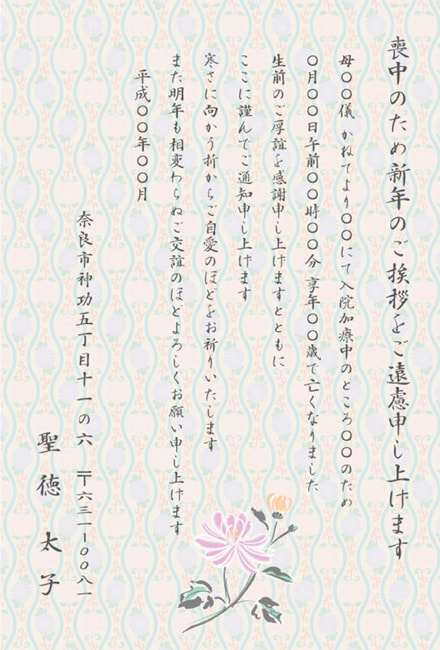 喪中のため新年のご挨拶をご遠慮申し上げます
母〇〇儀 かねてより〇〇にて入院加療中のところ〇〇のため
〇月〇〇日午前〇〇時〇〇分 享年〇〇歳で亡くなりました
生前のご厚誼を感謝申し上げますとともに
ここに謹んでご通知申し上げます
寒さに向かう折からご自愛のほどをお祈りいたします
また明年も相変わらぬご交誼のほどよろしくお願い申し上げます
平成〇〇年〇〇月
奈良市神功五丁目十一の六 〒六三一-〇〇八一
聖徳太子